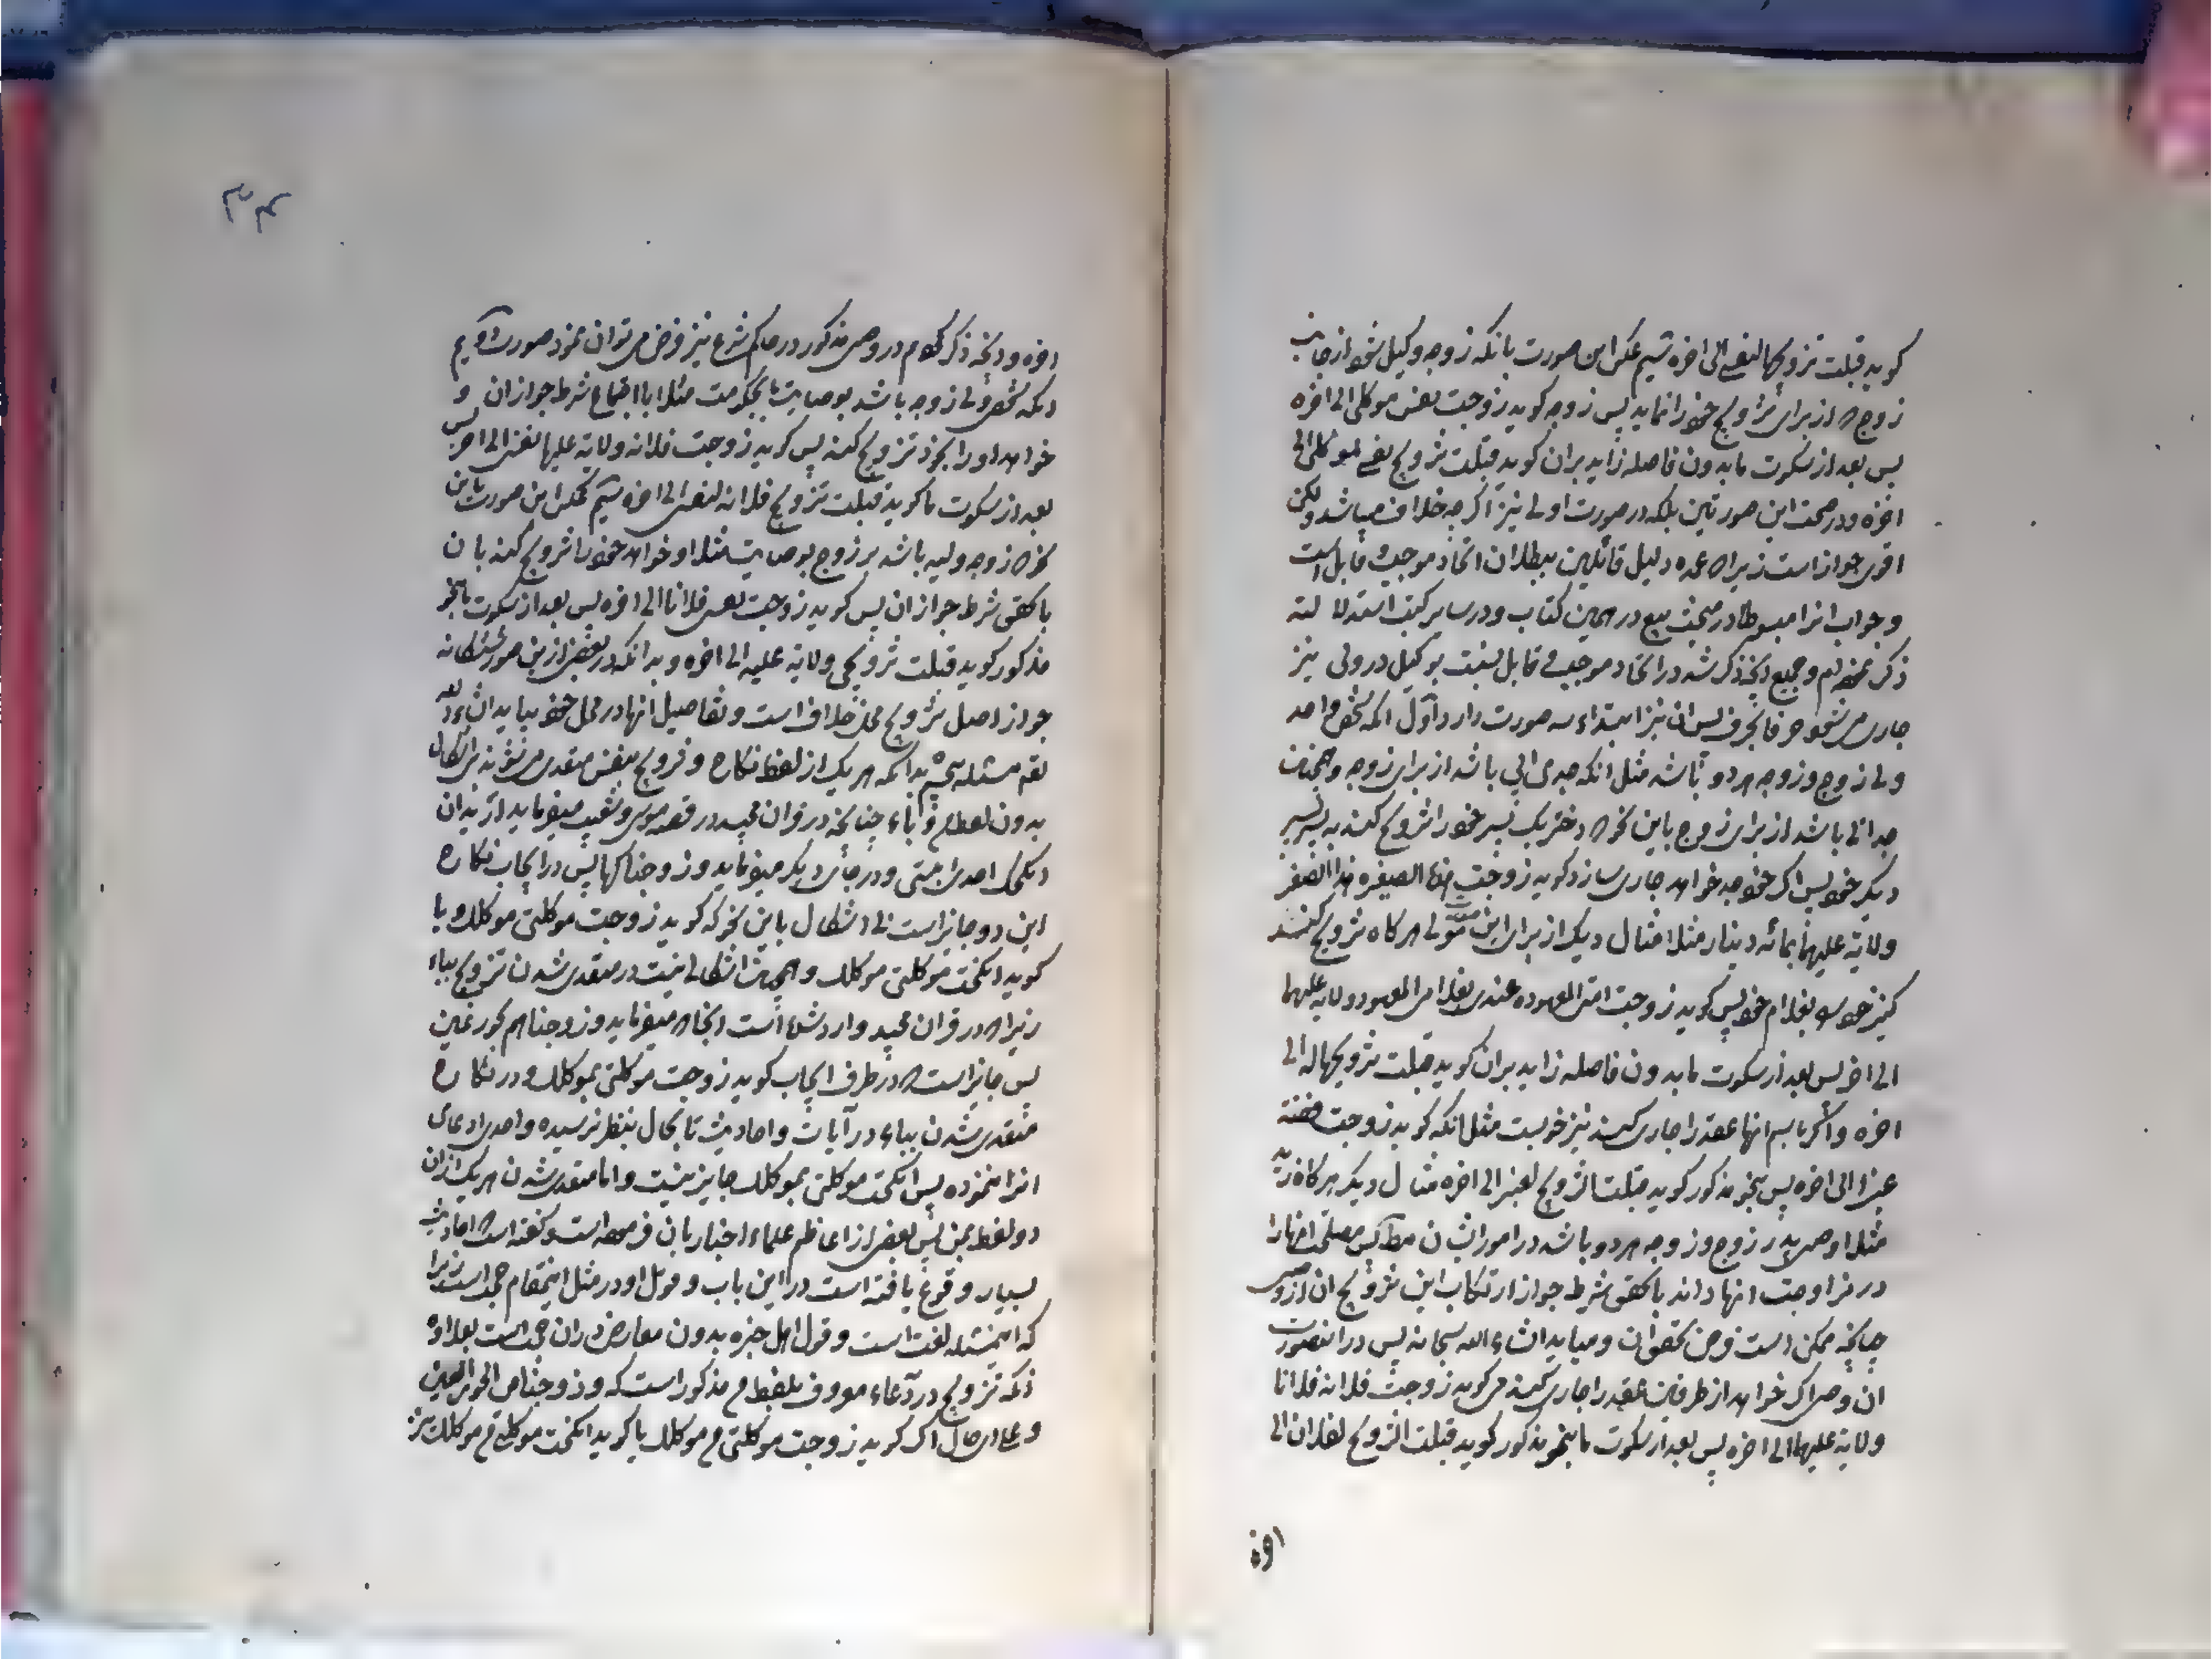 گوید قبلت تزویجها لنفسی الی اخره سیم عکس این صورت بانکه زوجه وکیل شود از جانب
زوج از برای تزویج خود را نماید پس زوجه گوید زوجت نفسی موکلی الی اخره
پس بعد از سکوت ما بدون فاصله زاید بران گوید قبلت تزویج نفسی لموکلی الی
اخره و در صحت این صورتین بلکه در صورت اولی نیز اگر چه خلاف میباشد ولکن
اقوی جواز است زیرا که عمده دلیل قائلین ببطلان اتحاد موجب و قابل است
و جواب انرا مبسوطا در مبحث بیع در همین کتاب و در سایر کتب استدلالیه
ذکر نموده‌ام و جمیع آنچه ذکر شد در اتحاد موجب و قابل نسبت بوکیل در ولی نیز
جاری می‌شود حرفا بحرف پس ان نیز ابتداء سه صورت دارد اول انکه شخص واحد
ولی زوج و زوجه هر دو باشد مثل انکه جد ابی باشد از برای زوجه و همچنین
جد ابی باشد از برای زوج باین نحو که دختر یک پسر خود را تزویج کند به پسر پسر
دیگر خود پس اگر خود جد خواهد جاری سازد گوید زوجت هذه الصغیره هذا الصغیر
ولایة علیهما بمائه دینار مثلا مثال دیگر از برای این صورت مولی هر گاه تزویج کند
کنیز خود را بغلام خود پس گوید زوجت امتی المعهوده عندی بغلامی المعهود ولایة علیهما
الی اخر پس بعد از سکوت ما بدون فاصله زاید بران گوید قبلت تزویجها له الی
اخره و اگر باسم انها عقد را جاری کند نیز خوبست مثل انکه گوید زوجت فضة
عنبرا الی اخره پس بنحو مذکور گوید قبلت التزویج لعنبر الی اخره مثال دیگر هر گاه زید
مثلا وصی پدر زوج و زوجه هر دو باشد در امور ایشان مطلقا پس مصلحت انها را
در مزاوجت انها داند با تحقق شرط جواز ارتکاب این تزویج ان از وصی
چنانچه ممکن است فرض تحقق ان و میاید انشاء الله سبحانه پس در اینصورت
ان وصی اگر خواهد از طرفین عقد را جاری کند می‌گوید زوجت فلانه فلانا
ولایة علیهما الی اخره پس بعد از سکوت ما بنحو مذکور گوید قبلت التزویج لفلان الی
اخره
۳۴
اخره و آنچه ذکر کردم در وصی مذکور در حاکم شرع نیز فرض می‌توان نمود صورت دویم
انکه شخص ولی زوجه باشد بوصایت یا بحکومت مثلا با اجتماع شرط جواز ان و
خواهد او را بخود تزویج کند پس گوید زوجت فلانه ولایة علیها لنفسی الی اخر پس
بعد از سکوت ما گوید قبلت تزویج فلانه لنفسی الی اخره سیم عکس این صورت باین
نحو که زوجه ولیه باشد بر زوج بوصایت مثلا و خواهد خود را تزویج کند بان
با تحقق شرط جواز ان پس گوید زوجت نفسی فلانا الی اخره پس بعد از سکوت بنحو
مذکور گوید قبلت تزویجی ولایة علیه الی اخره و بدانکه در بعضی از این صور ششگانه
جواز اصل تزویج محل خلاف است و تفاصیل انها در محل خود میاید انشاء الله
تعالی مسئله بدانکه هر یک از لفظ نکاح و تزویج بنفس متعدی می‌شوند بی اشکال
بدون لفظ من و باء چنانچه در قران مجید در قصه موسی و شعیب میفرماید ارید ان
انکحک احدی ابنتی و در جای دیگر میفرماید و زوجناکها پس در ایجاب نکاح
این دو جایز است بی اشکال باین نحو که گوید زوجت موکلتی موکلک و یا
گوید انکحت موکلتی موکلک و همچنین اشکالی نیست در متعدی شدن تزویج بباء
زیرا که در قران مجید وارد شده است انجا که میفرماید و زوجناهم بحور عین
پس جایز است که در طرف ایجاب گوید زوجت موکلتی بموکلک و در نکاح
متعدی شدن بباء در آیات و احادیث تا بحال بنظر نرسیده و احدی ادعای
انرا ننموده پس انکحت موکلتی بموکلک جایز نیست و اما متعدی شدن هر یک از ان
دو لفظ بمن پس بعضی از اعاظم علماء اخبار بان فرموده است و گفته است که احادیث
بسیار وقوع یافته است در این باب و قول او در مثل اینمقام حجت است زیرا
که این مسئله لغت است و قول اهل خبره بدون معارض دران حجت است بعلاوه
انکه تزویج در دعاء معروف بلفظ من مذکور است که و زوجنا من الحور العین
و علی ای حال اگر گوید زوجت موکلتی من موکلک یا گوید انکحت موکلتی من موکلک نیز